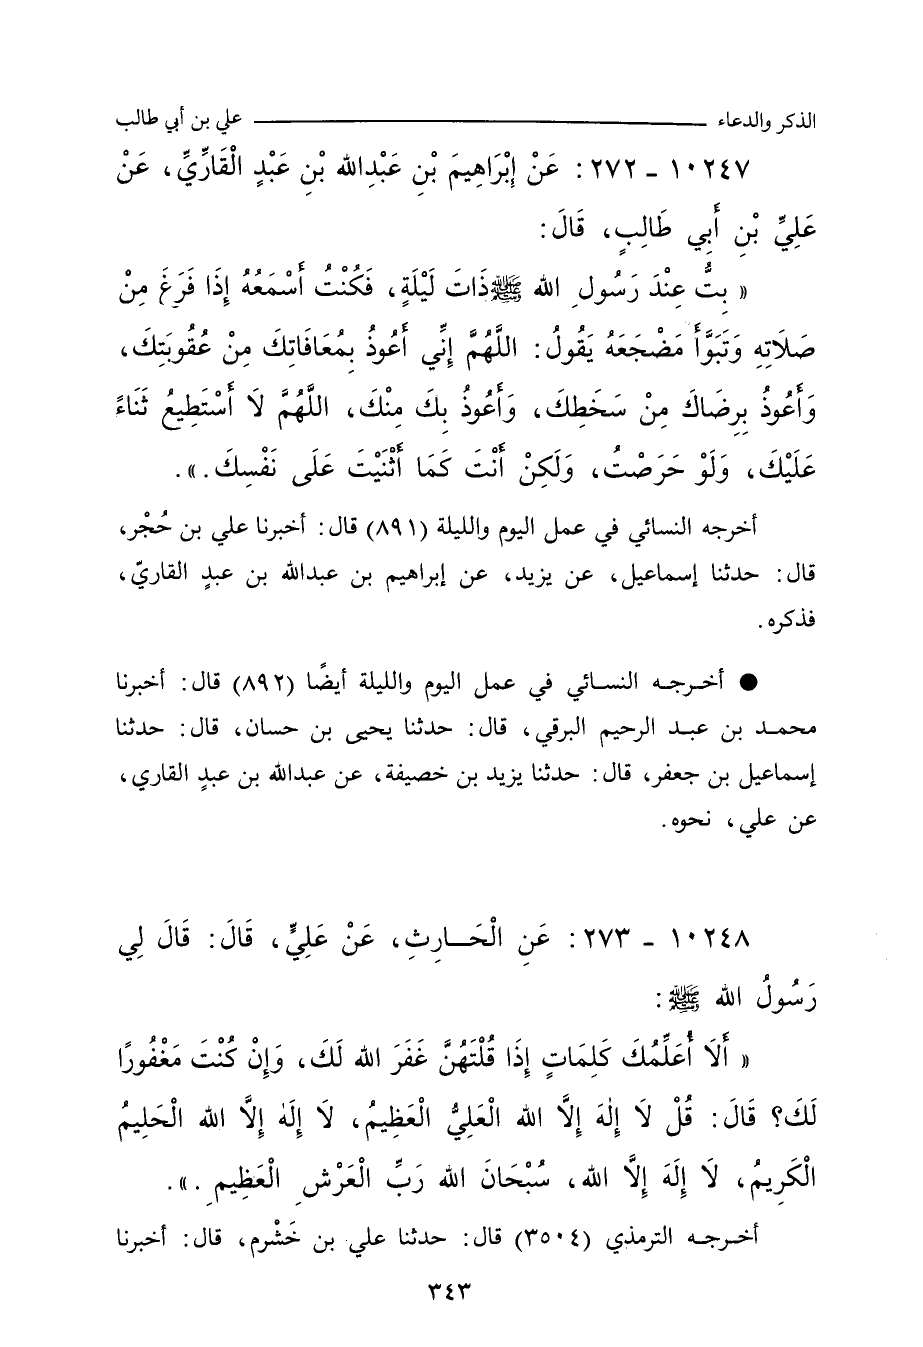 الذكر والدعاء ــــــــــــــــــــ علي بن أبي طالب
١٠٢٤٧ ـ ٢٧٢ : عَنْ إِبْرَاهِيمَ بْنِ عَبْدِاللهِ بْنِ عَبْدٍ الْقَارِّيِّ، عَنْ
عَلِيِّ بْنِ أَبِي طَالِبٍ، قَالَ:
« بِتُّ عِنْدَ رَسُولِ اللهِ ﷺ ذَاتَ لَيْلَةٍ، فَكُنْتُ أَسْمَعُهُ إِذَا فَرَغَ مِنْ
صَلَاتِهِ وَتَبَوَّأَ مَضْجَعَهُ يَقُولُ: اللَّهُمَّ إِنِّي أَعُوذُ بِمُعَافَاتِكَ مِنْ عُقُوبَتِكَ،
وَأَعُوذُ بِرِضَاكَ مِنْ سَخَطِكَ، وَأَعُوذُ بِكَ مِنْكَ، اللَّهُمَّ لَا أَسْتَطِيعُ ثَنَاءً
عَلَيْكَ، وَلَوْ حَرَصْتُ، وَلَكِنْ أَنْتَ كَمَا أَثْنَيْتَ عَلَى نَفْسِكَ.».
أخرجه النسائي في عمل اليوم والليلة (٨٩١) قال: أخبرنا علي بن حُجْر،
قال: حدثنا إسماعيل، عن يزيد، عن إبراهيم بن عبدالله بن عبدٍ القاريّ،
فذكره.
● أخرجه النسائي في عمل اليوم والليلة أيضًا (٨٩٢) قال: أخبرنا
محمد بن عبد الرحيم البرقي، قال: حدثنا يحيى بن حسان، قال: حدثنا
إسماعيل بن جعفر، قال: حدثنا يزيد بن خصيفة، عن عبدالله بن عبدٍ القاري،
عن علي، نحوه.
١٠٢٤٨ ـ ٢٧٣ : عَنِ الْحَارِثِ، عَنْ عَلِيٍّ، قَالَ: قَالَ لِي
رَسُولُ اللهِ ﷺ:
« أَلَا أُعَلِّمُكَ كَلِمَاتٍ إِذَا قُلْتَهُنَّ غَفَرَ اللهُ لَكَ، وَإِنْ كُنْتَ مَغْفُورًا
لَكَ؟ قَالَ: قُلْ لَا إِلٰهَ إِلَّا اللهُ الْعَلِيُّ الْعَظِيمُ، لَا إِلٰهَ إِلَّا اللهُ الْحَلِيمُ
الْكَرِيمُ، لَا إِلَهَ إِلَّا اللهُ، سُبْحَانَ اللهِ رَبِّ الْعَرْشِ الْعَظِيمِ.».
أخرجه الترمذي (٣٥٠٤) قال: حدثنا علي بن خَشْرم، قال: أخبرنا
٣٤٣